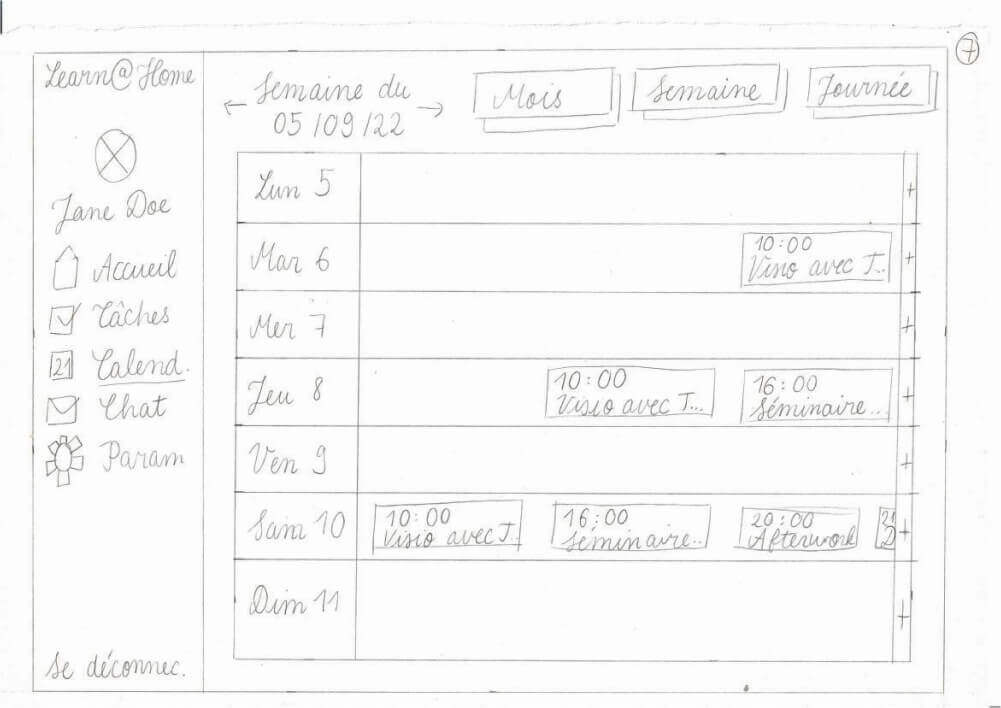 7
Learn@Home
Jane Doe
Accueil
Tâches
21 Calend.
Chat
Param
Se déconnec.
← Semaine du →
05/09/22
Mois
Semaine
Journée
Lun 5
+
Mar 6
10:00
Visio avec T...
+
Mer 7
+
Jeu 8
10:00
Visio avec T...
16:00
Séminaire...
+
Ven 9
+
Sam 10
10:00
Visio avec T..
16:00
Séminaire..
20:00
Afterwork
21
D
+
Dim 11
+